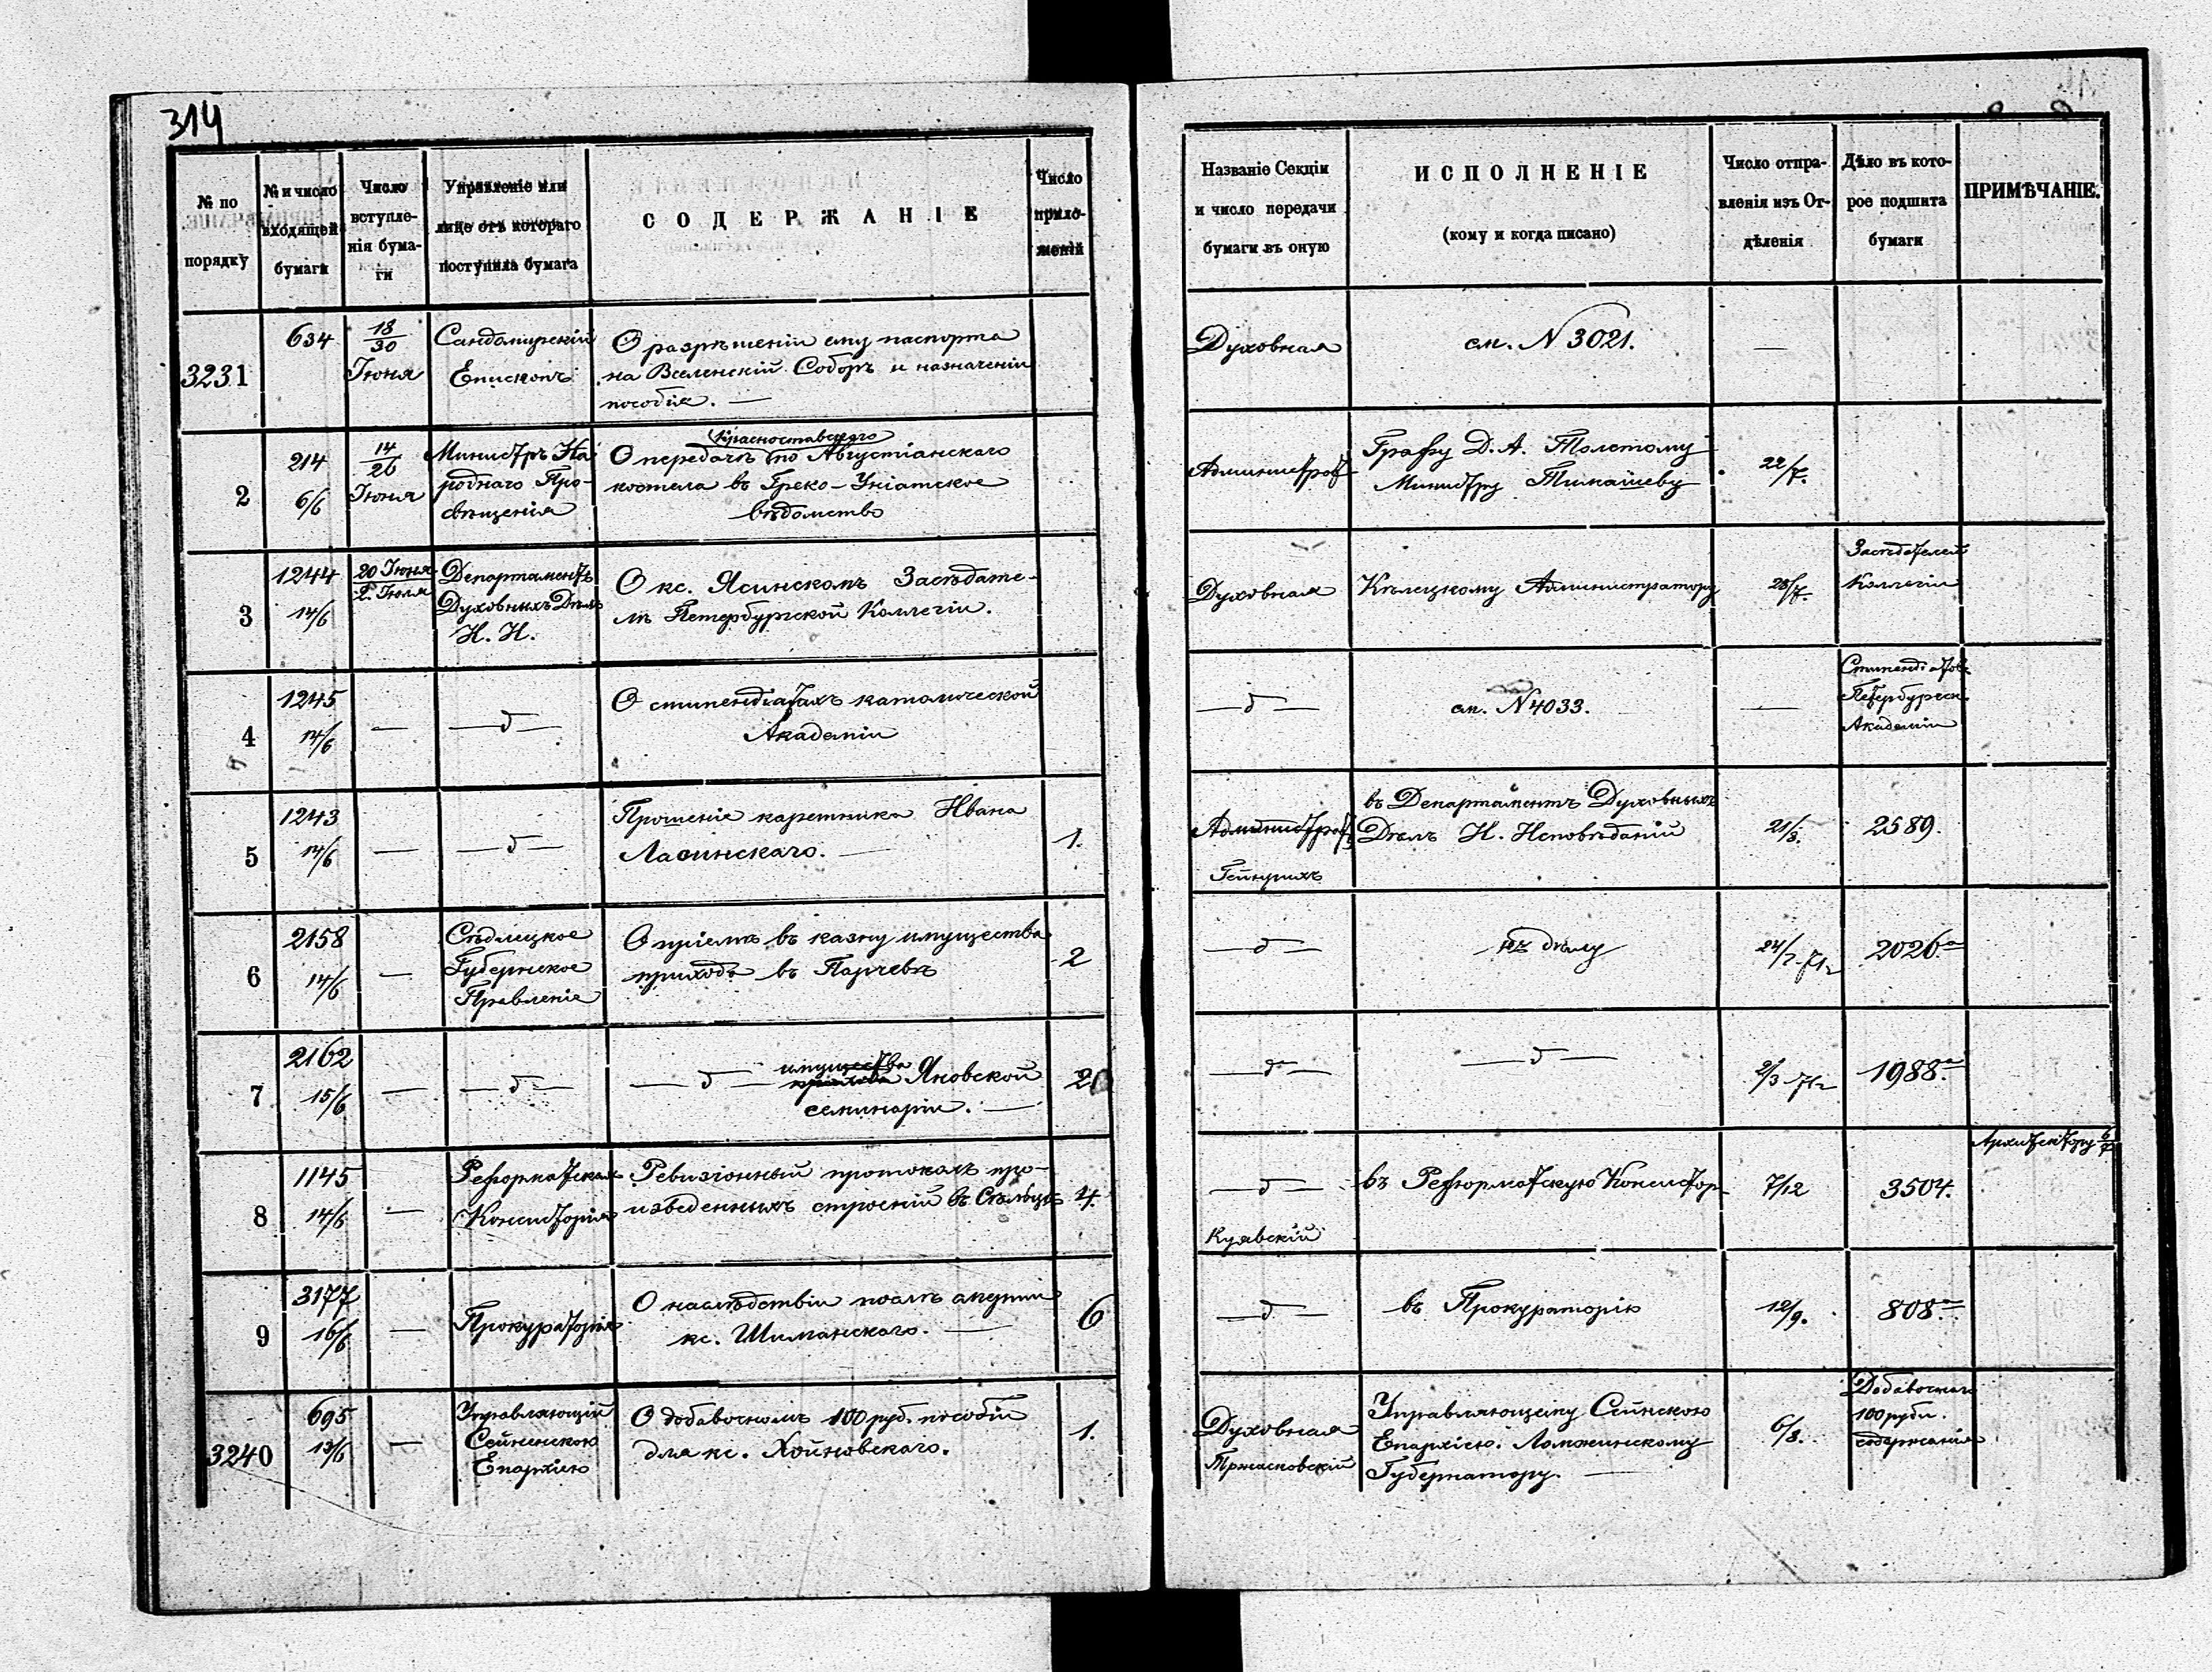 314
№ по порядку
№ и число входящей бумаги
Число вступле-
нія бума-
ги
Управленіе или
лице отъ котораго
поступила бумага
СОДЕРЖАНІЕ
Число
прило-
женій
Названіе Секціи
и число передачи
бумаги въ оную
ИСПОЛНЕНІЕ
(кому и когда писано)
Число отпра-
вленія изъ От-
дѣленія
Дѣло въ кото-
рое подшита
бумага
ПРИМѢЧАНІЕ.
3231
634
18/30
Іюня
Сандомирскій
Епископъ
О разрѣшеніи ему паспорта
на Вселенскій Соборъ и назначеніи
пособія. —
Духовная
см. N 3021.
—
2
214
6/6
14/26
Іюня
Министръ На-
роднаго Про-
свѣщенія
Красноставскаго
О передачѣ по Августіанскаго
костела въ Греко-Уніатское
вѣдомство
Администрат
Графу Д. А. Толстому
Министру Тимашеву
22/7.
3
1244
14/6
20 Іюня
2. Іюля
Департаментъ
Духовныхъ Дѣлъ
И. И.
О кс. Ясинскомъ Засѣдате-
лѣ Петербургской Коллегіи.
Духовная
Кѣлецкому Администратору
28/7.
Засѣдателей
Коллегіи
4
1245
14/6
—
—д—
О стипендіатахъ католической
Академіи
—д—
см. N 4033.
—
Стипендіатовъ
Петербургск.
Академіи
5
1243
14/6
—
—д—
Прошеніе каретника Ивана
Ласинскаго. —
1.
Администрат
Гейнрихъ
въ Департаментъ Духовныхъ
Дѣлъ И. Исповѣданій
21/8.
2589.
6
2158
14/6
—
Сѣдлецкое
Губернское
Правленіе
О пріемѣ въ казну имущества
прихода въ Парчевѣ
2
—д—
къ дѣлу
24/2-71г
2026а
7
2162
15/6
—
—д—
имущества
—д— Яновской
семинаріи. —
2
—д—
—д—
2/3-71г
1988а
8
1145
14/6
—
Реформатская
Консисторія
Ревизіонный протоколъ про-
изведенныхъ строеній въ Сѣльцѣ
4.
—д—
Куявскій
въ Реформатскую Консистор
7/12
3504.
Архитектору 6/7
9
3177
16/6
—
Прокураторія
О наслѣдствіи послѣ
кс. Шиманскаго. —
6
—д—
въ Прокураторію
12/9.
808а
3240
695
13/6
—
Управляющій
Сейненскою
Епархіею
О добавочномъ 100 руб. пособіи
для кс. Хойновскаго.
1.
Духовная
Тржасковскій
Управляющему Сейнскою
Епархіею. Ломжинскому
Губернатору. —
6/8.
Добавочнаго
100 рубл.
содержанія